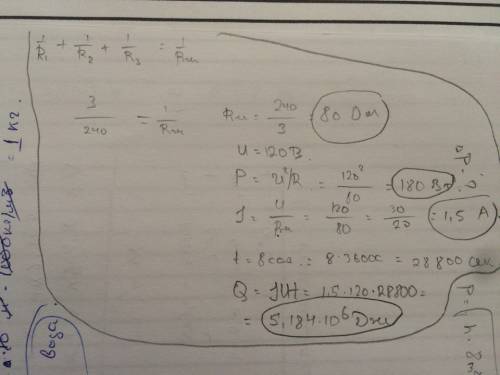 1/R1 + 1/R2 + 1/R3 = 1/Rпи
3/240 = 1/Rпи
Rи = 240/3 = 80 Ом
U = 120 В.
P = U²/R = 120²/80 = 180 Вт.
J = U/Rи = 120/80 = 30/20 = 1,5 А
t = 8 час = 8·3600 = 28 800 сек
Q = JUt = 1.5·120·28800 =
= 5,184·10⁶ Дж
= 1 кг.
вода